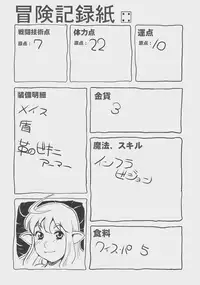 冒険記録紙
戦闘技術点
原点:7
体力点
原点:22
運点
原点:10
装備明細
メイス
盾
革のビキニ
アーマー
金貨
3
魔法、スキル
インフラ
ビジョン
食料
5